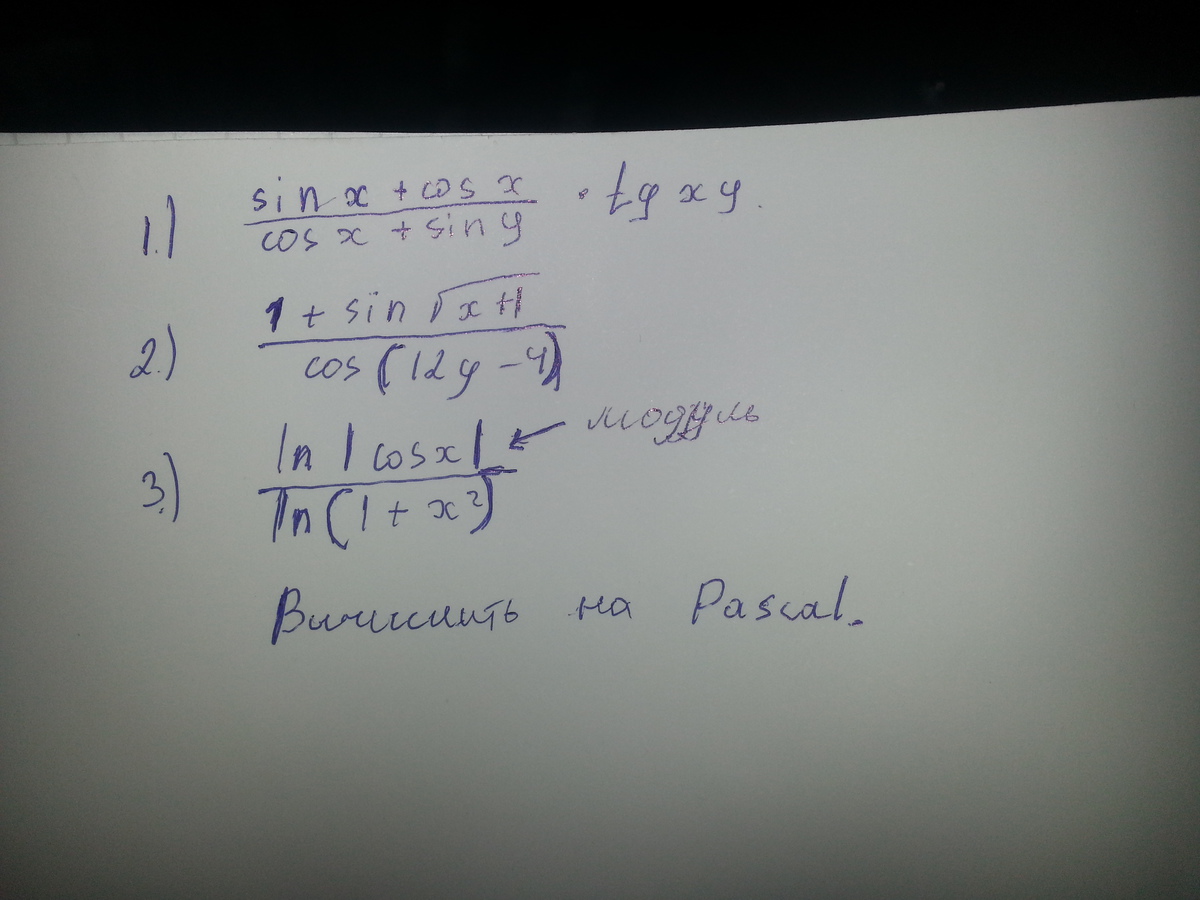 1.) (sin x + cos x) / (cos x + sin y) · tg xy.
2.) (1 + sin √(x+1)) / (cos (12y - 4))
3.) (ln |cos x|) / (ln (1 + x²)) ← модуль
Вычислить на Pascal.